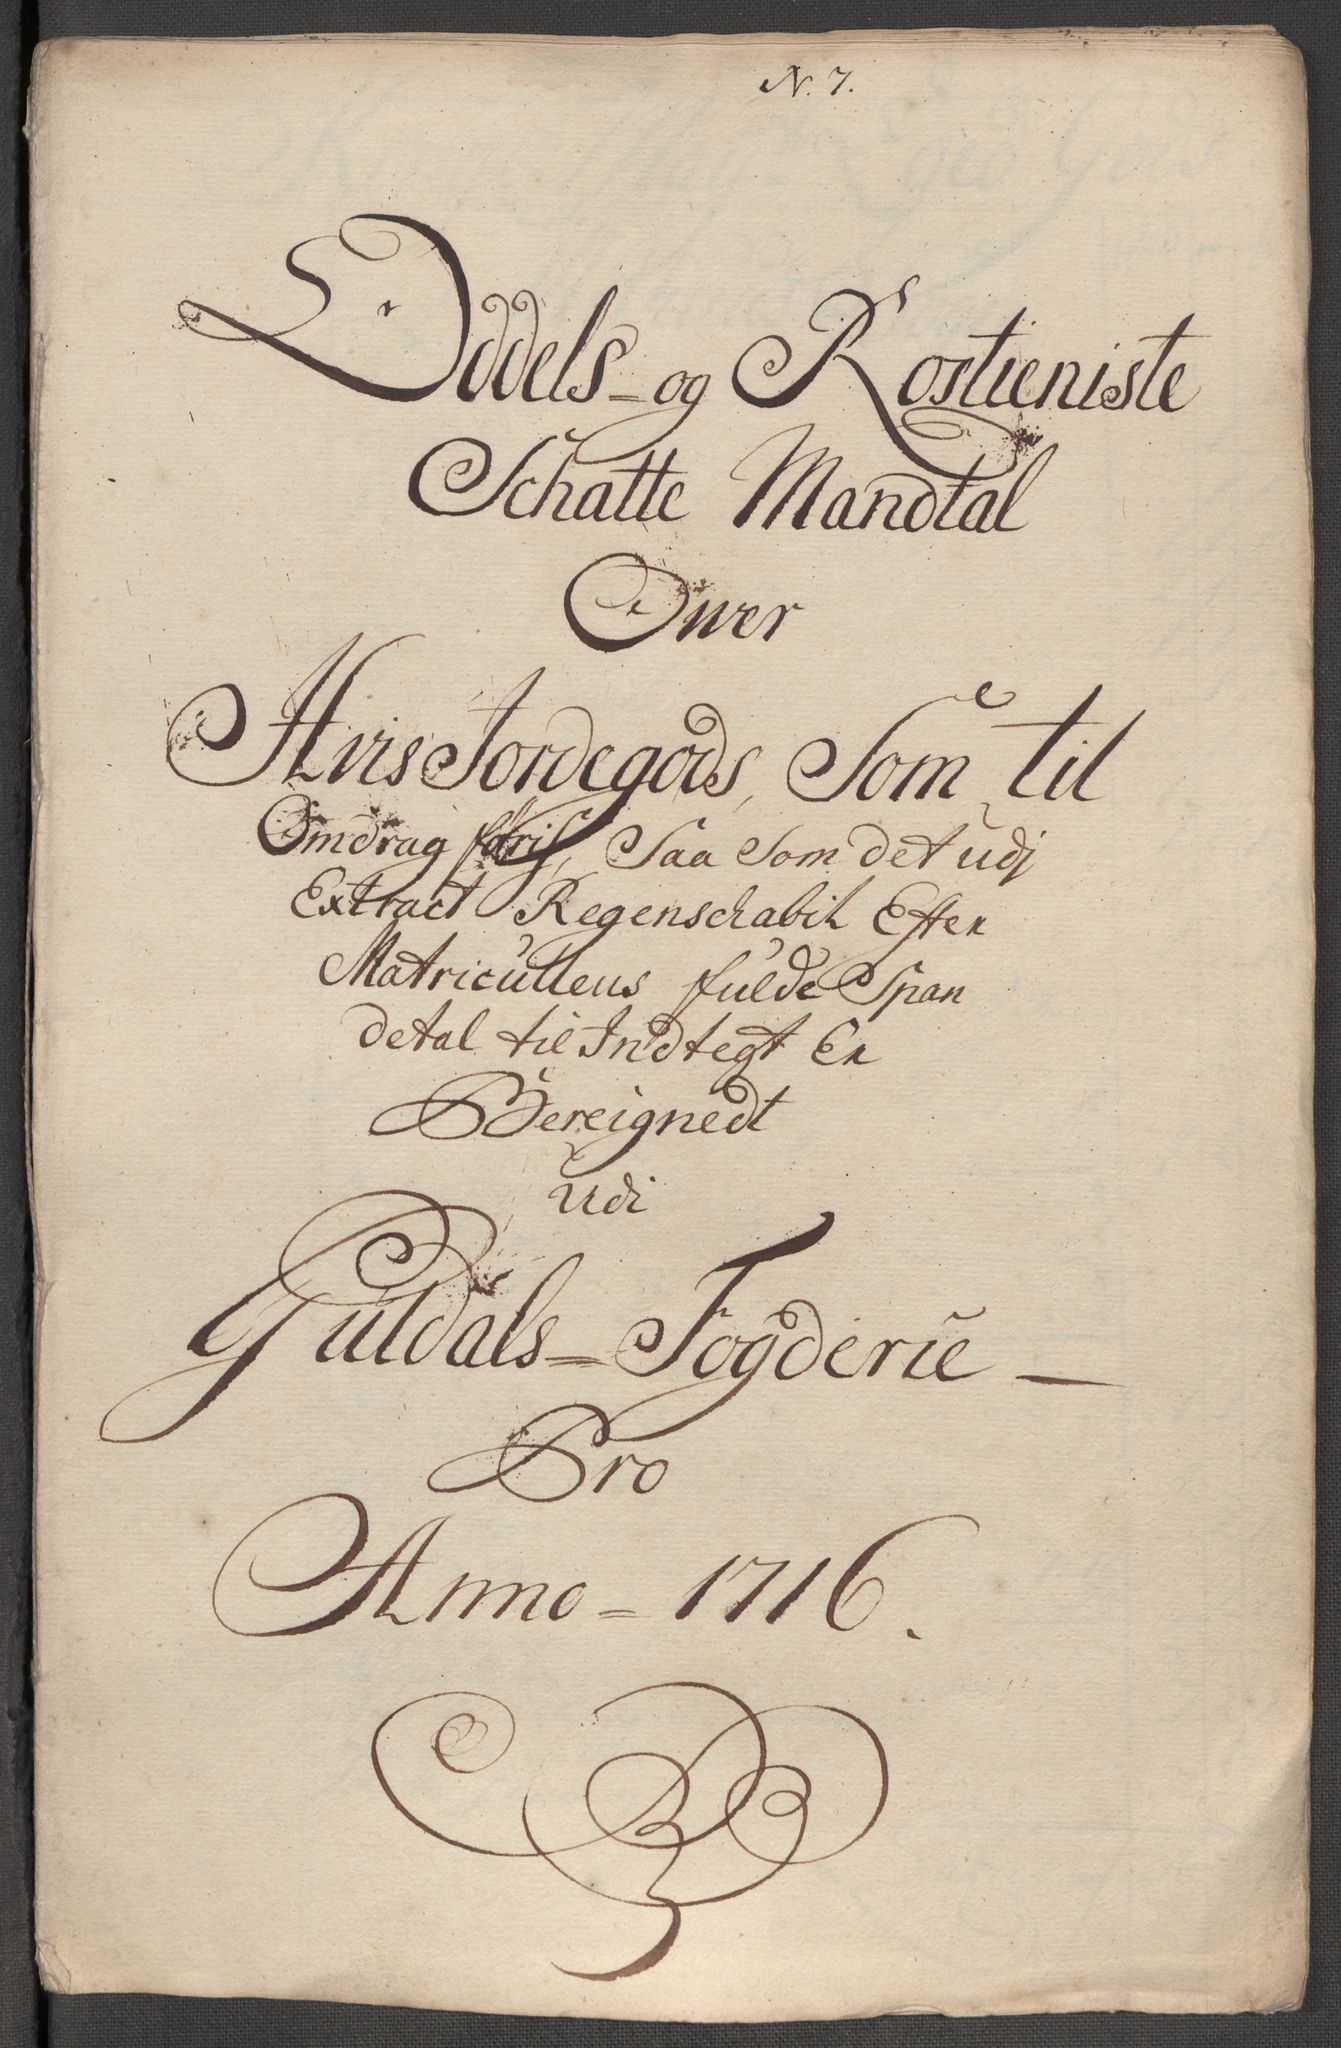 N. 7.
Oddels- og Rostieniste
Schatte Mandtal
Ower
Hvis Jordegods, Som til
Omdrag föris, Saa Som det udj
Extract Regenschabit Efter
Matricullens fulde Span
detal til Indtegt Er
Bereignedt
udi
Guldals = Fogderie -
Pro
Anno = 1716.